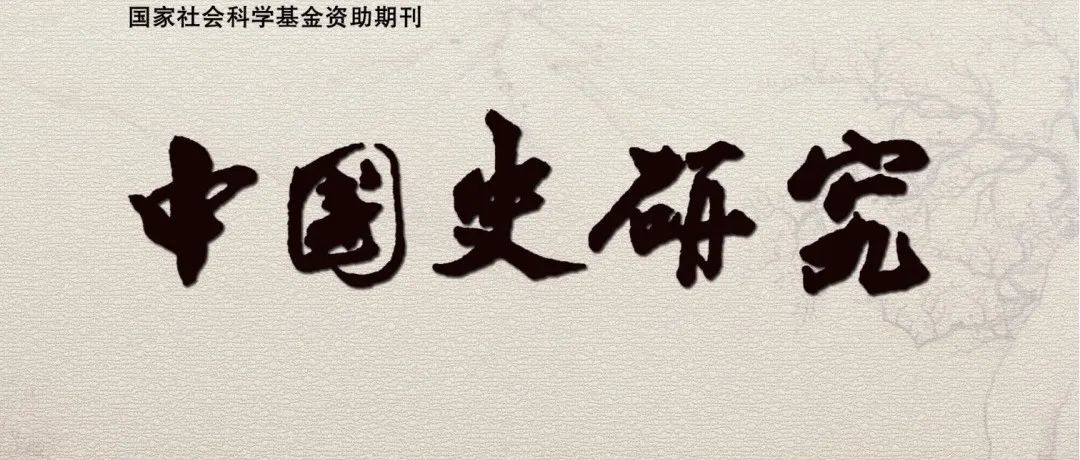 国家社会科学基金资助期刊
中国史研究